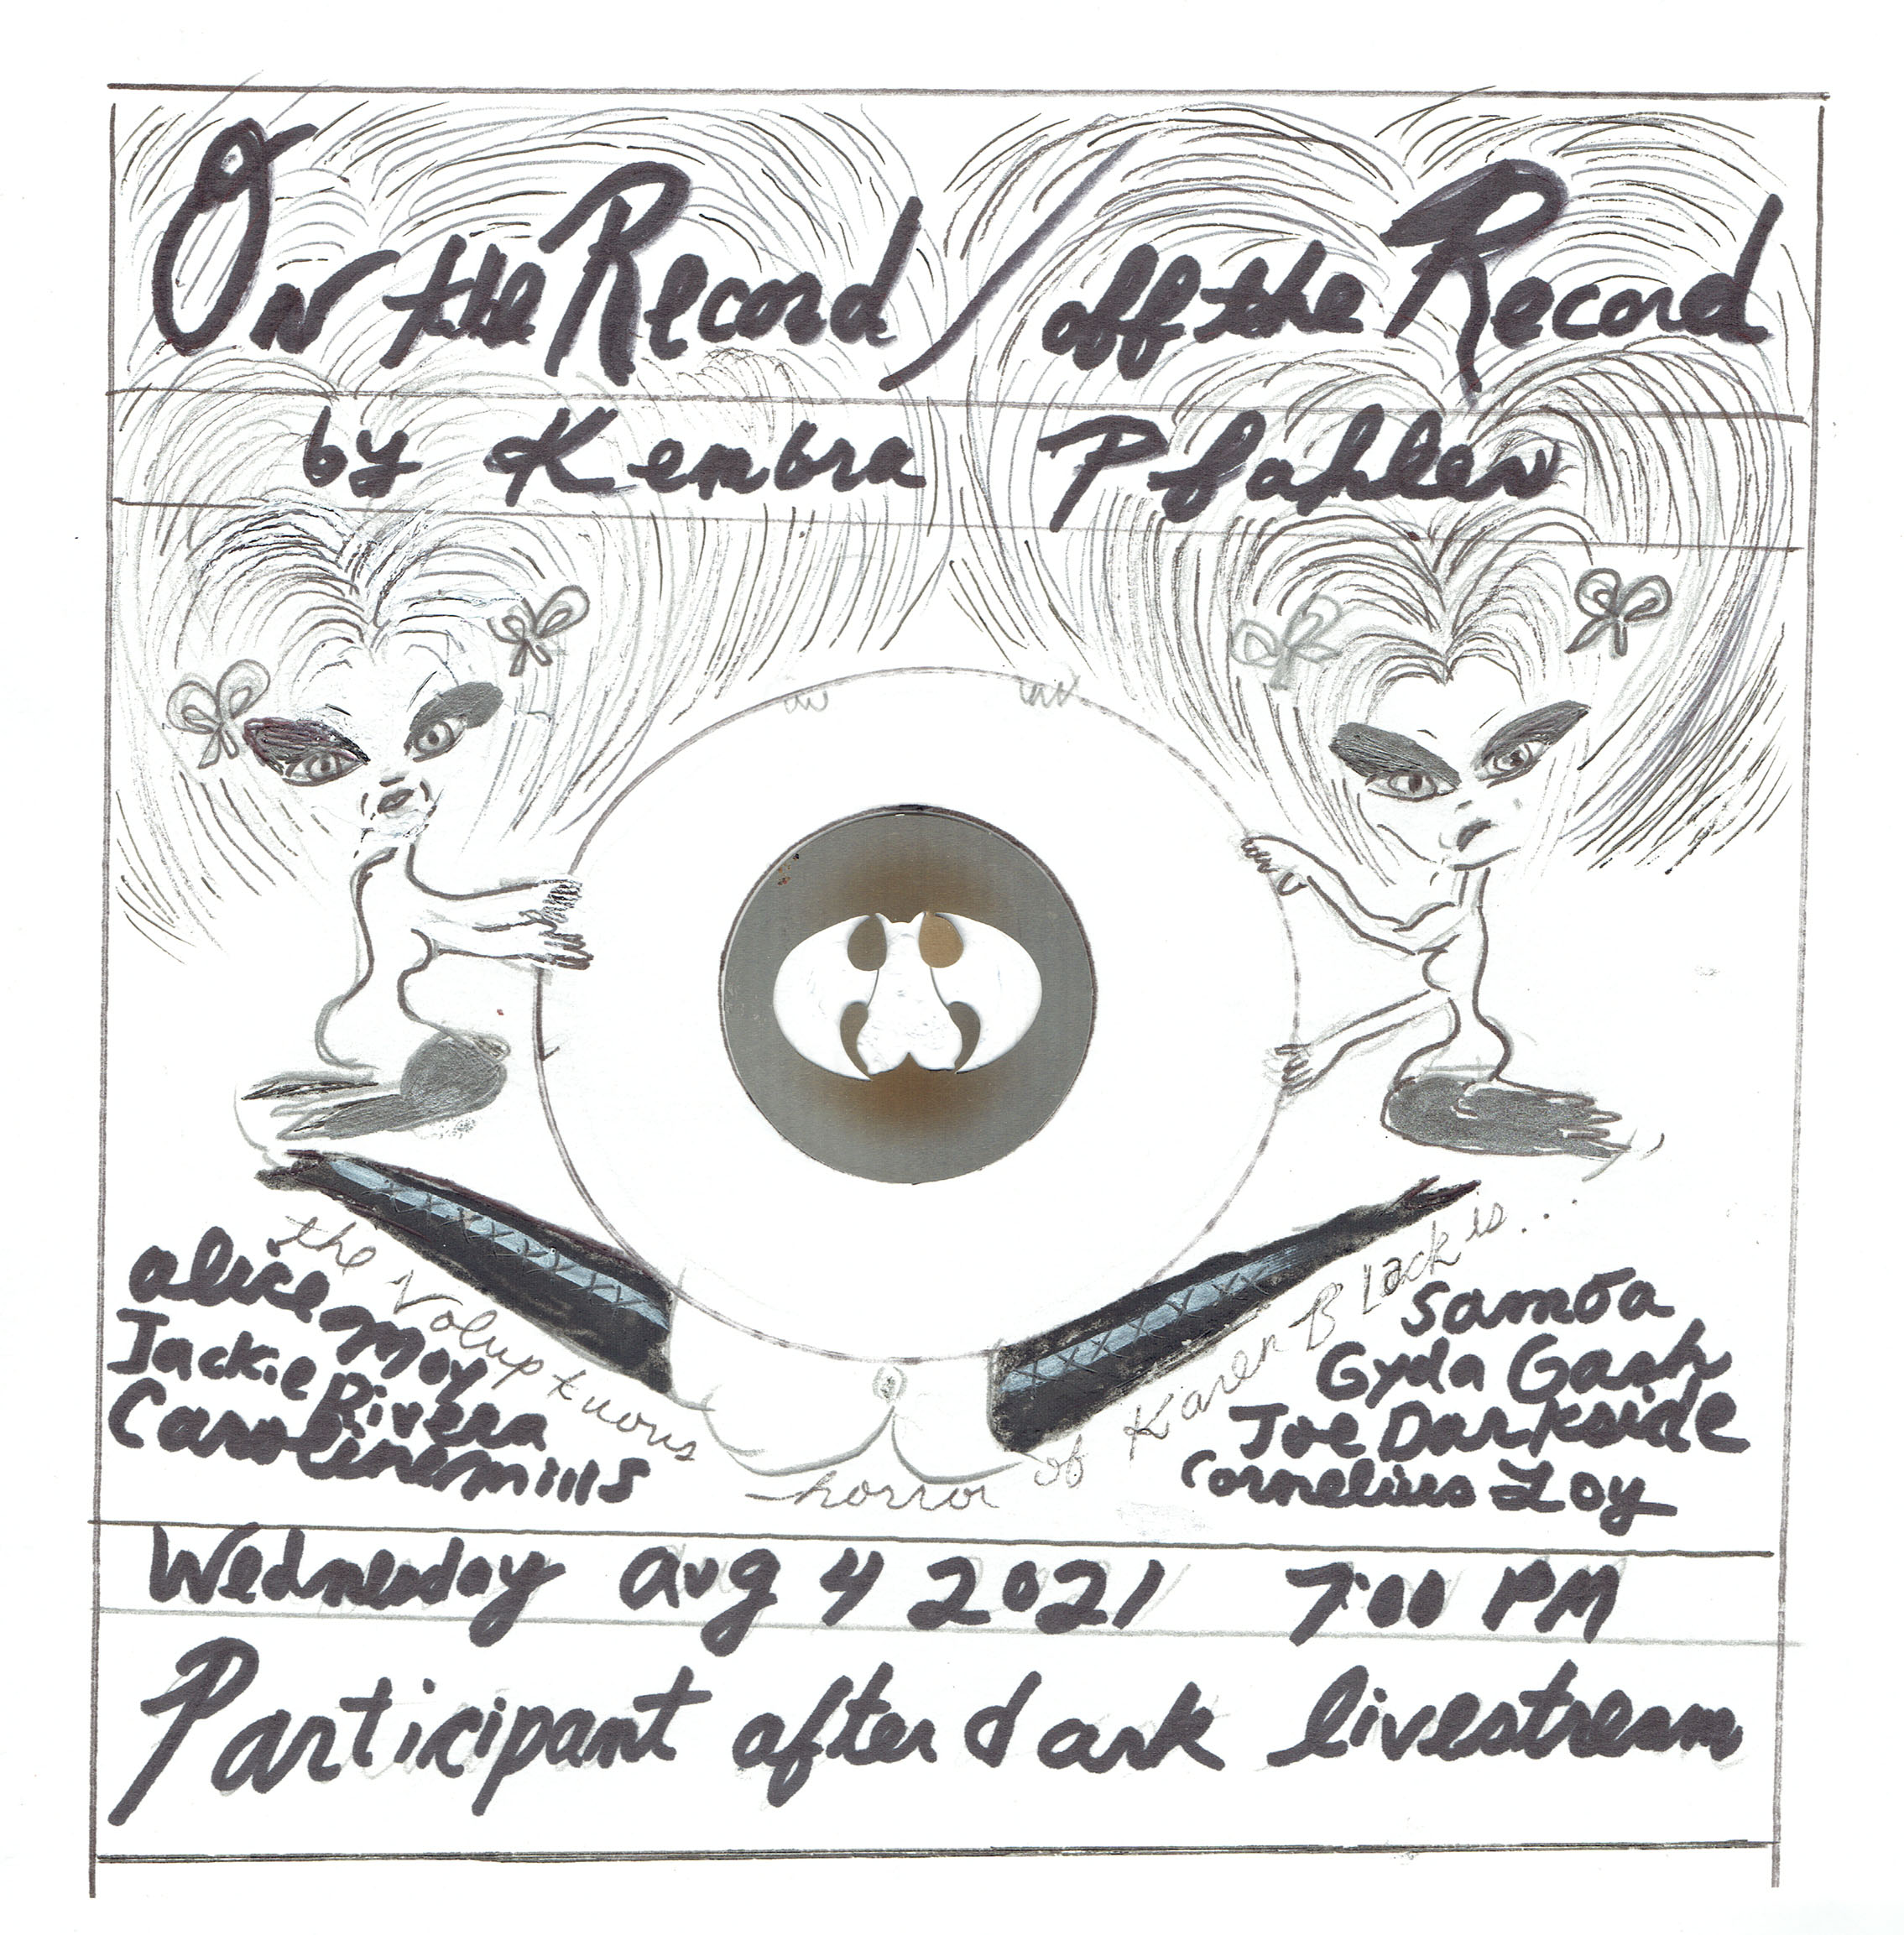 On the Record / off the Record
by Kembra Pfahler
the Voluptuous horror of Karen Black is...
alice Moy
Jackie Rivera
Caroline mills
Samoa
Gyda Gash
Joe Darkside
Cornelius Loy
Wednesday aug 4 2021 7:00 PM
Participant after dark livestream